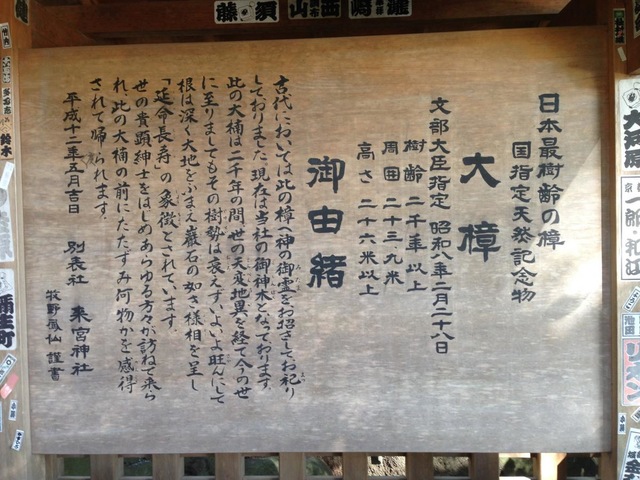 日本最樹齢の樟
国指定天然記念物
大樟
文部大臣指定 昭和八年二月二十八日
樹齢 二千年以上
周囲 二十三、九米
高さ 二十六米以上
御由緒
古代においては此の樟へ神の御霊をお招きしてお祀り
しておりました 現在は当社の御神木となっております。
此の大楠は二千年の間 世の天変地異を経て今の世
に至りましてもその樹勢は衰えずいよいよ旺んにして
根は深く大地をふまえ巌石の如き様相を呈し
「延命長寿」の象徴とされています。
世の貴顕紳士をはじめあらゆる方々が訪ねて来ら
れ此の大楠の前にたたずみ何物かを感得
されて帰られます。
平成十二年五月吉日 別表社 来宮神社
牧野 仙 謹書
藤 須
山 西
鈴木
弥生町